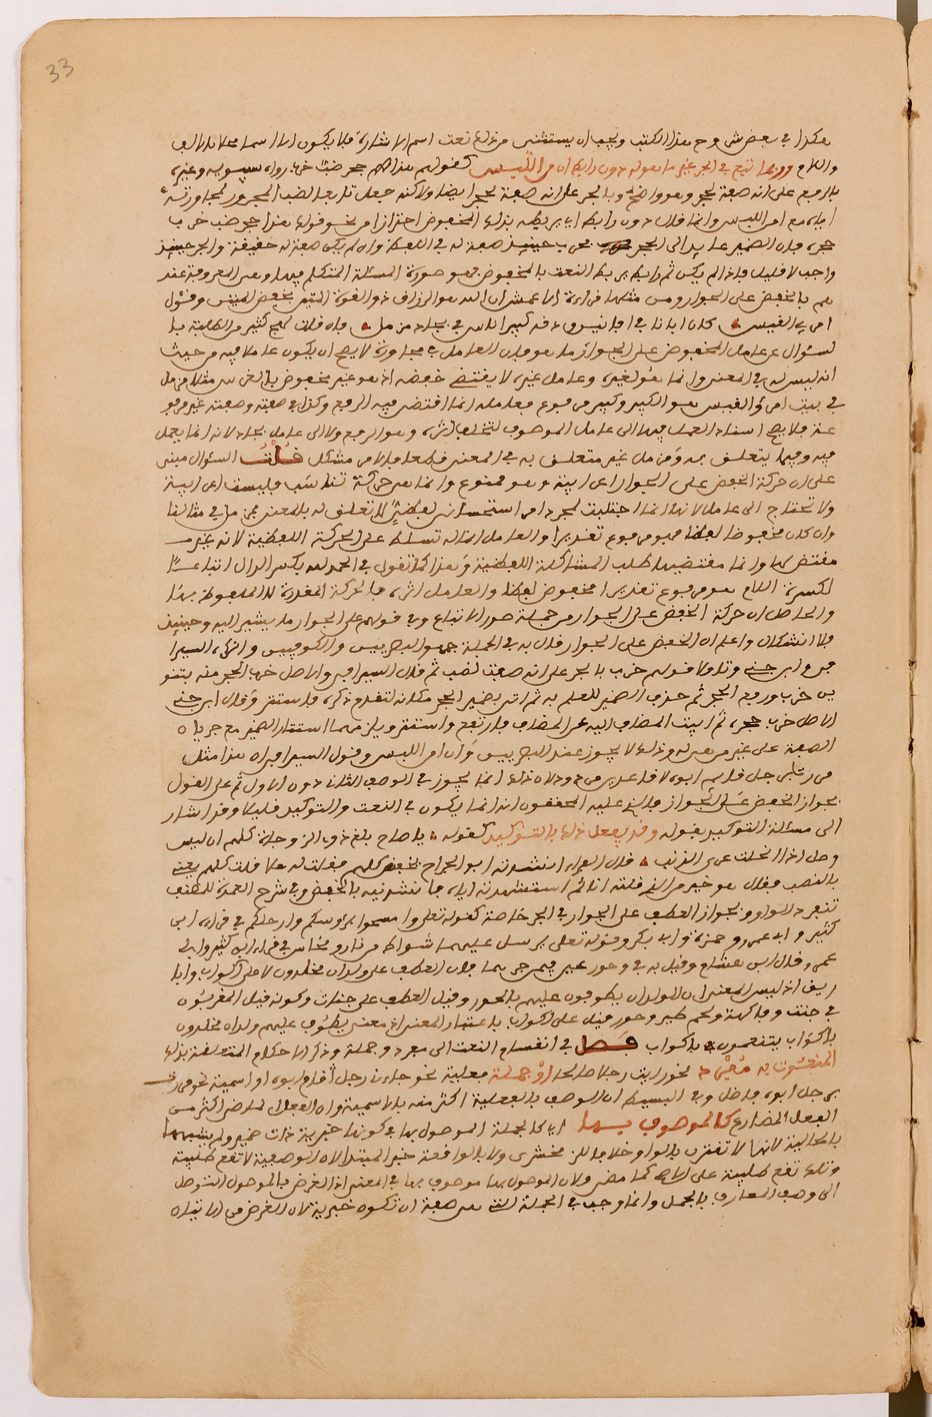 33
هكذا في بعض شروح هذا الكتاب ويجب ان يستثنى من ذلك نعت اسم الاشارة فلا يكون الا اسما محلا بالالف
واللام وربما تبع في الجر غير ما هو له دون رابط ان من اللبس كقولهم هذا حجر ضب خرب رواه سيبويه وغيره
بالرفع على انه صفة لحجر وهو واضح وبالجر على انه صفة لحجر ايضا ولكنه جعل تابعا لضب المجرور لمجاورته
اياه مع امن اللبس وانما قال دون رابط اي يربطه بذلك المخفوض احترازا من نحو قولك هذا حجر ضب خرب
حجره فان الضمير عايد الى الحجر فخرب حينئذ صفة له في اللفظ وان لم يكن صفة له حقيقة والجر حينئذ
واجب لا قليل فاذا لم يكن ثم رابط يربط النعت بالمخفوض فهو صورة المسئلة المتكلم فيها وهي المعروفة عند
هم بالخفض على الجوار ومن مثلها قراءة الاعمش ان الله هو الرزاق ذو القوة المتين بخفض المتين وقول
امرئ القيس كان ابانا في افانين ودقه كبير اناس في بجاد مزمل فان قلت لهج كثير من الطلبة با
لسؤال عن عامل المخفوض على الجوار ما هو فان العامل في مجاوره لا يصح ان يكون عاملا فيه من حيث
انه ليس له في المعنى وانما هو لغيره وعامل غيره لا يقتضي خفضه اذ هو غير مخفوض بالغرض مثلا مزمل
في بيت امرئ القيس هو الكبير وكبير مرفوع فعامله انما اقتضى فيه الرفع وكذا في صفته وصفته غير مرفو
عة فلا يصح اسناد العمل فيها الى عامل الموصوف لتخلف اثره وهو الرفع ولا الى عامل بجاد لانه انما يعمل
فيه وفيما يتعلق به ومزمل غير متعلق به في المعنى فالعامل اذن مشكل قلت السؤال مبني
على ان حركة الخفض على الجوار اعرابية وهو ممنوع وانما هي حركة تناسب فليست اعرابية
ولا تحتاج الى عامل لانها انما اجتلبت لمجرد امر استحساني لفظي لا تعلق له بالمعنى فمزمل في مثالنا
وان كان مخفوضا لفظا فهو مرفوع تقديرا والعامل انما له تسلط على الحركة اللفظية لانه غير
مقتض لها وانما مقتضيها طلب المشاكلة اللفظية وهذا كما تقول في الحمد لله بكسر الدال اتباعا
لكسرة اللام هو مرفوع تقديرا مخفوض لفظا والعامل اثره في الحركة المقدرة لا الملفوظ بها
والحاصل ان حركة الخفض على الجوار من جملة صور الاتباع وفي قولهم على الجوار ما يشير اليه وحينئذ
فلا اشكال واعلم ان الخفض على الجوار قال به في الجملة جمهور البصريين والكوفيين وانكره السيرا
في وابن جني وتاولا قولهم خرب بالجر على انه صفة لضب ثم قال السيرافي والاصل خرب الجحر منه بتنو
ين خرب ورفع الجحر ثم حذف الضمير للعلم به ثم اتى بضمير الجحر مكانه لتقدم ذكره فاستتر وقال ابن جني
الاصل خرب جحره ثم انيب المضاف اليه عن المضاف فارتفع واستتر ويلزمهما استتار الضمير مع جريان
الصفة على غير من هي له وذلك لا يجوز عند البصريين وان امن اللبس وقول السيرافي ان هذا مثل
مررت برجل قائم ابواه لا قاعدين مردود لان ذلك انما يجوز في الوصف الثاني دون الاول ثم على القول
بجواز الخفض على الجوار فالذي عليه المحققون انه انما يكون في النعت والتوكيد قليلا وقد اشار
الى مسئلة التوكيد بقوله وقد يفعل ذلك بالتوكيد كقوله يا صاح بلغ ذوي الزوجات كلهم ان ليس
وصل اذا انحلت عرى الذنب قال الفراء انشدنيه ابو الجراح بخفض كلهم فقلت له هلا قلت كلهم يعني
بالنصب فقال هو خير من الذي قلته انا ثم استنشدته اياه فانشدنيه بالخفض وفي شرح العمدة للمصنف
تنفرد الواو بجواز العطف على الجوار في الجر خاصة كقوله تعالى وامسحوا برؤسكم وارجلكم في قراءة ابن
كثير وابي عمرو وحمزة وابي بكر وقوله تعالى يرسل عليكما شواظ من نار ونحاس في قراءة ابن كثير وابي
عمرو وقال ابن هشام وقيل به في وحور عين فيمن جرهما فان العطف على ولدان مخلدون لا على اكواب وابا
ريق اذ ليس المعنى ان الولدان يطوفون عليهم بالحور وقيل العطف على جنات وكانه قيل المقربون
في جنت وفاكهة ولحم طير وحور وقيل على اكواب باعتبار المعنى اذ معنى يطوف عليهم ولدان مخلدون
باكواب يتنعمون باكواب فصل في انقسام النعت الى مفرد وجملة وذكر الاحكام المتعلقة بذلك
المنعوت به مفرد نحو رايت رجلا صالحا او جملة فعلية نحو جاءني رجل قام ابوه او اسمية نحو مررت
برجل ابوه فاضل وفي البسيط ان الوصف بالفعلية اكثر منه بالاسمية وان الفعل الماضي اكثر من
الفعل المضارع كالموصول بها اي كالجملة الموصول بها في كونها خبرية ذات ضمير ولم يشبهها
بالحالية لانها لا تقترن بالواو خلافا للزمخشري ولا بالواقعة خبر المبتدا لان الوصفية لا تقع طلبية
وتلك تقع طلبية على الاصح كما مضى ولان الموصول بها موصوف بها في المعنى اذ الغرض بالموصول التوصل
الى وصف المعارف بالجمل وانما وجب في الجملة التي هي صفة ان تكون خبرية لان الغرض من الاتيان